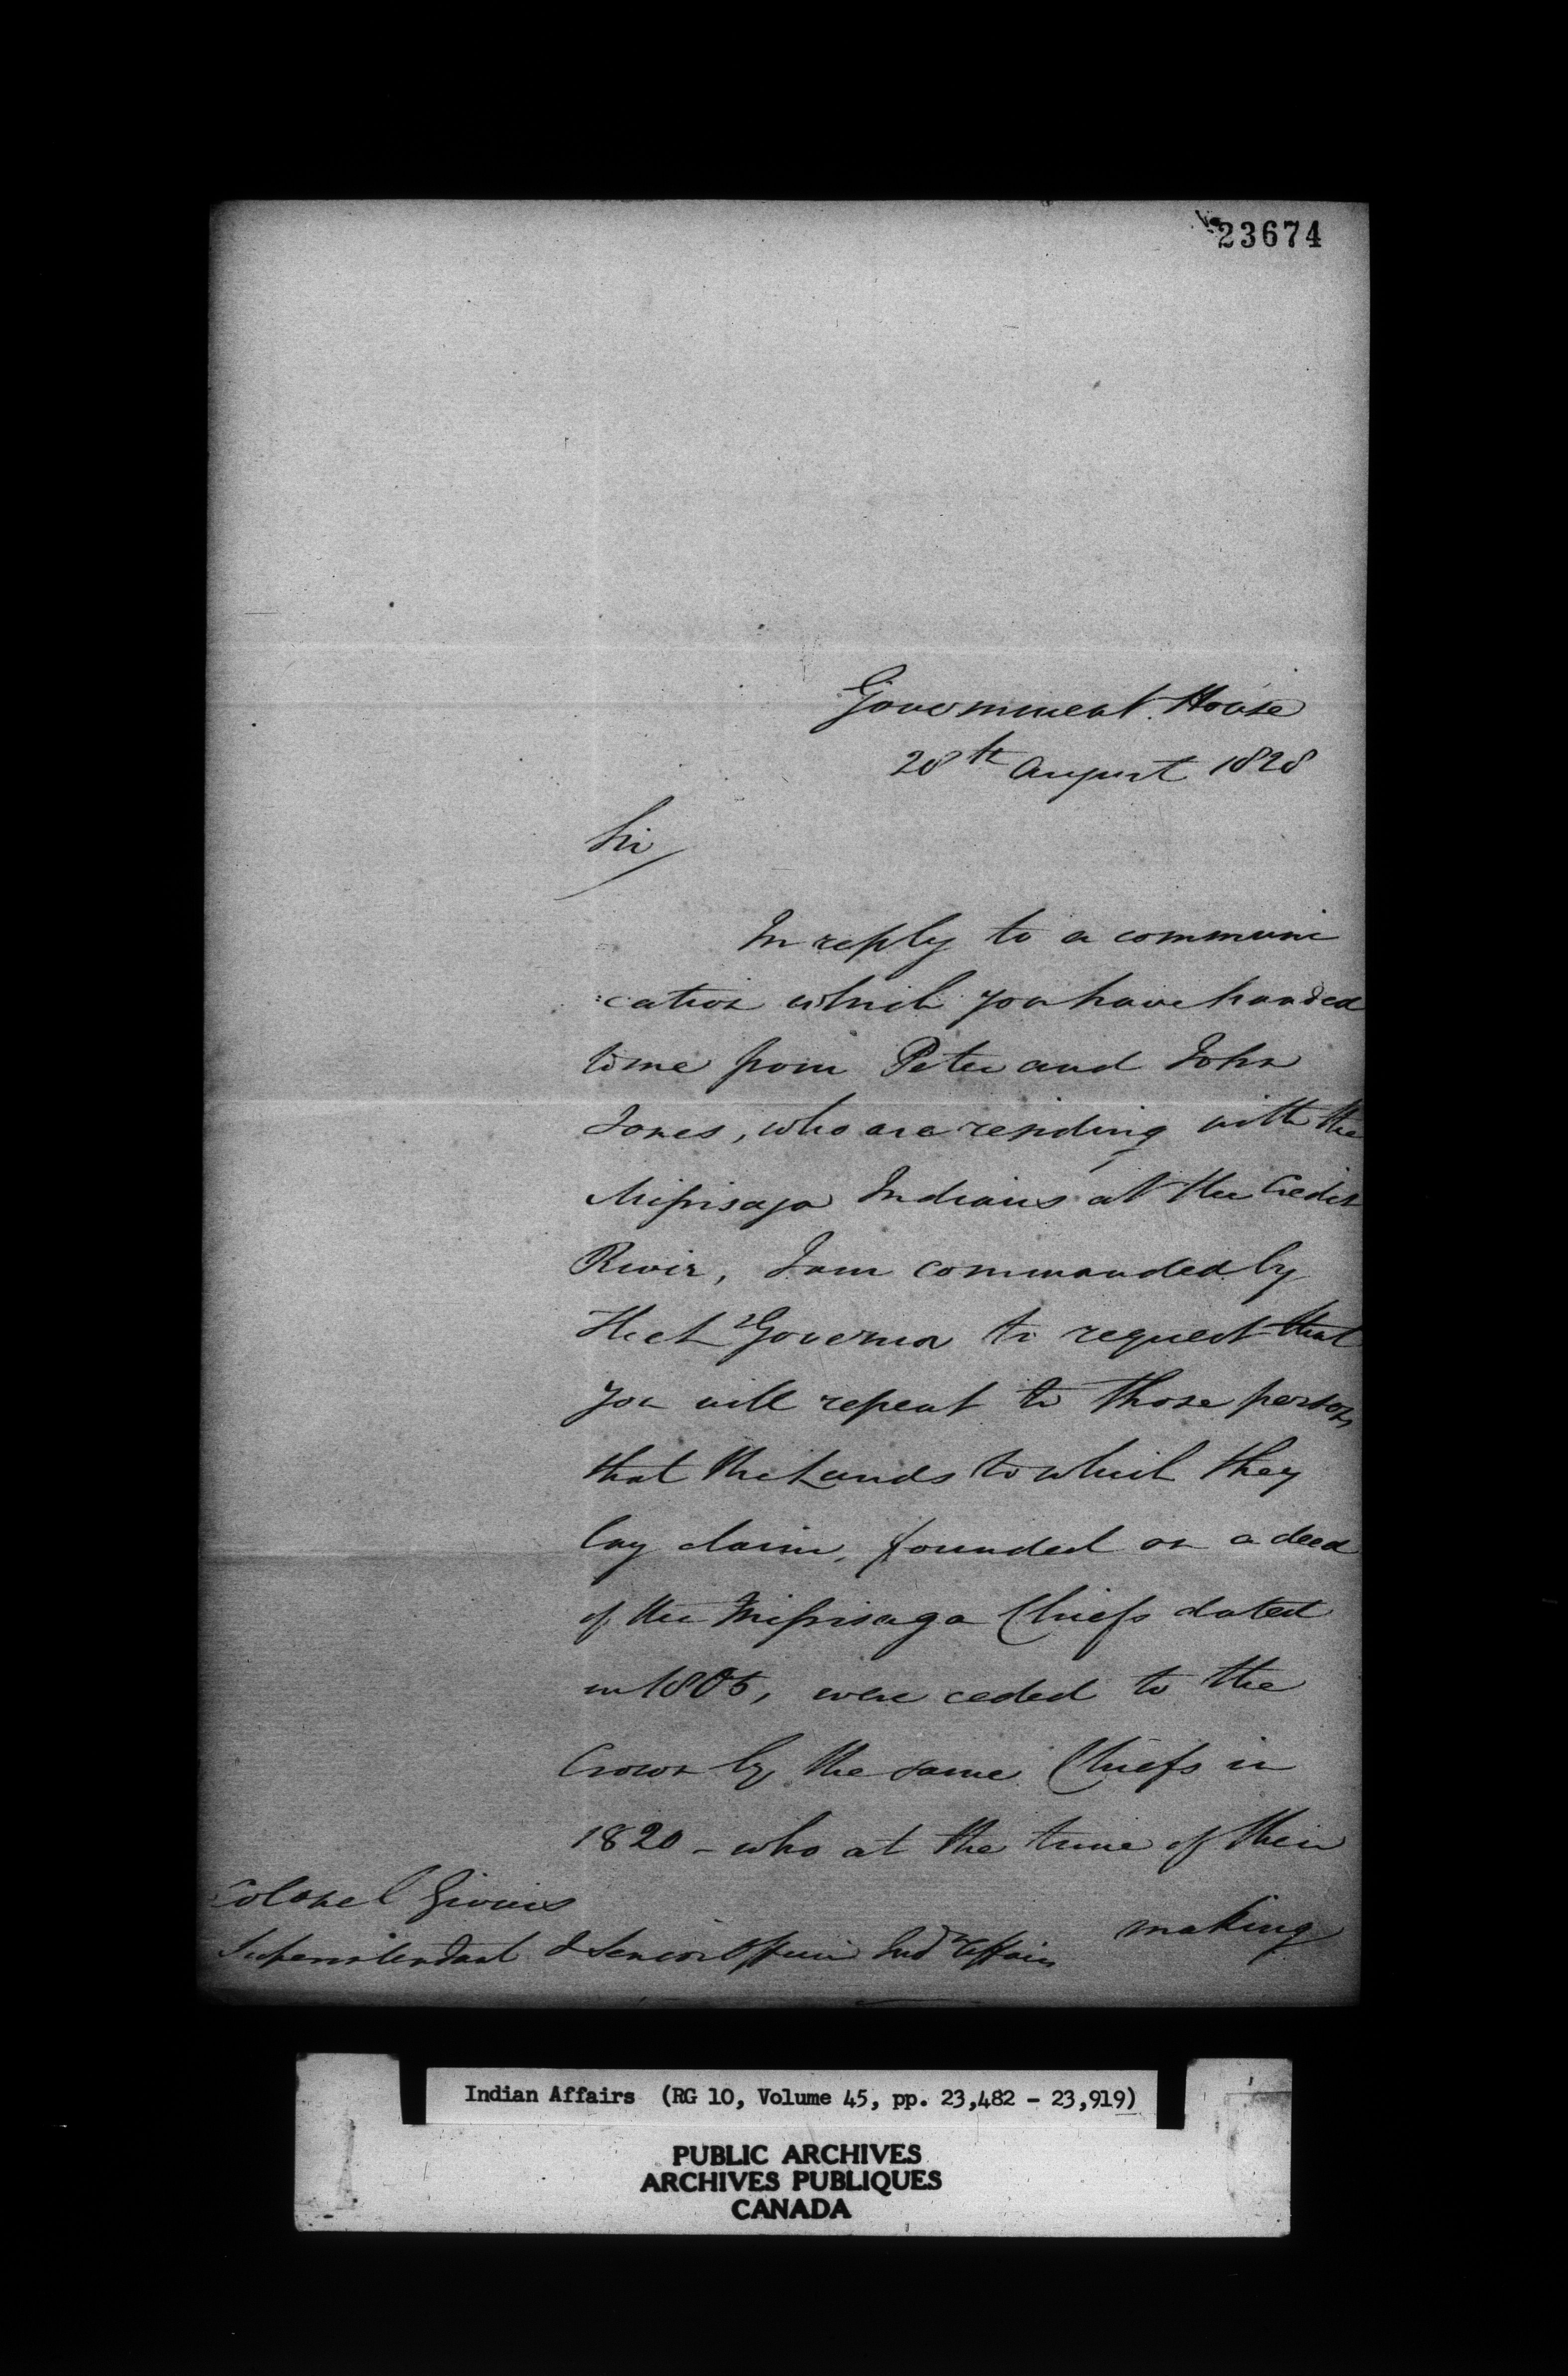 23674
Government House
28th August 1828
Sir
In reply to a communi
:cation which you have handed
to me from Peter and John
Jones, who are residing with the
Missisaga Indians at the Credit
River, I am commanded by
The Lt Governor to request that
you will repeat to those persons
that the Lands to which they
lay claim, founded on a deed
of the Missisaga Chiefs dated
in 1805, were ceded to the
Crown by the same Chiefs in
1820 - who at the time of their
making
Colonel Givins
Superintendant & Senior Officer Indn Affairs
Indian Affairs (RG 10, Volume 45, pp. 23,482 - 23,919)
PUBLIC ARCHIVES
ARCHIVES PUBLIQUES
CANADA